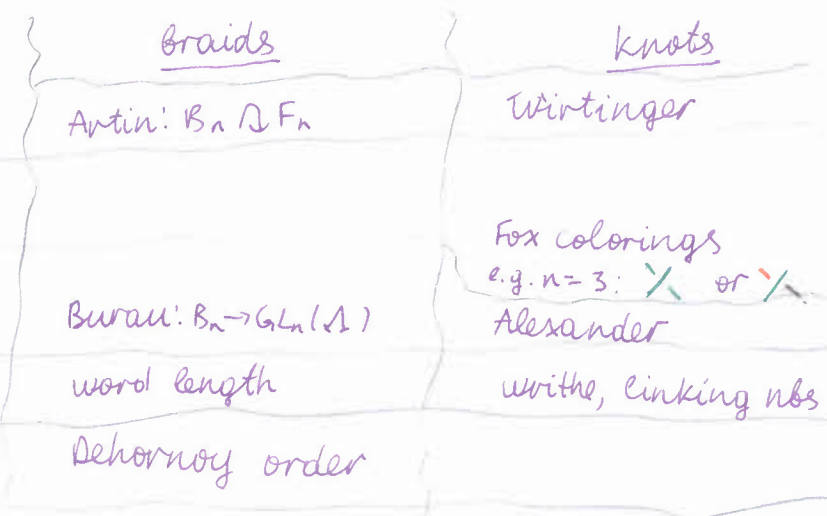 Braids
Knots
Artin: Bn ↷ Fn
Wirtinger
Fox colorings
e.g. n = 3: or
Burau: Bn → GLn(Λ)
Alexander
word length
writhe, linking nbs
Dehornoy order